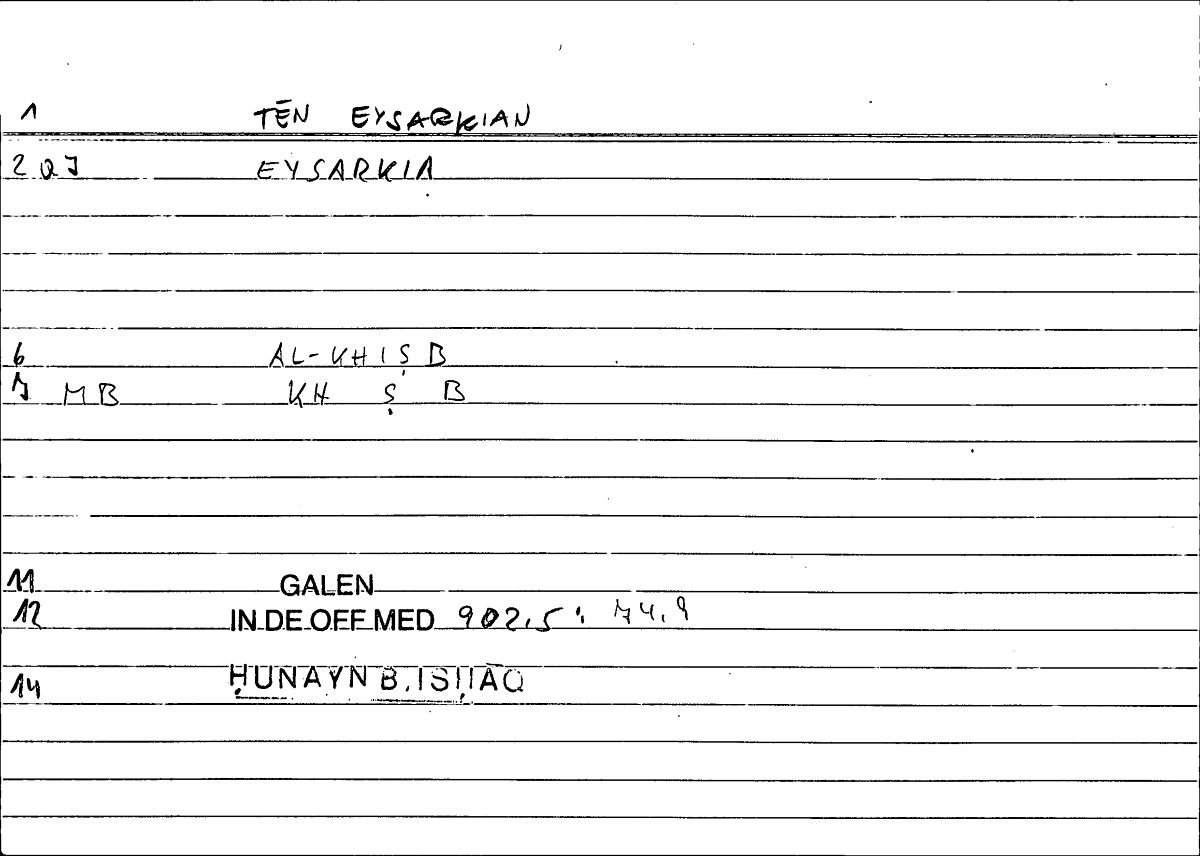 1 TĒN EYSARKIAN
2 QJ EYSARKIA
6 AL-KHIṢB
7 MB KH Ṣ B
11 GALEN
12 IN DE OFF MED 902,5 : 74,9
14 ḤUNAYN B. ISḤĀQ